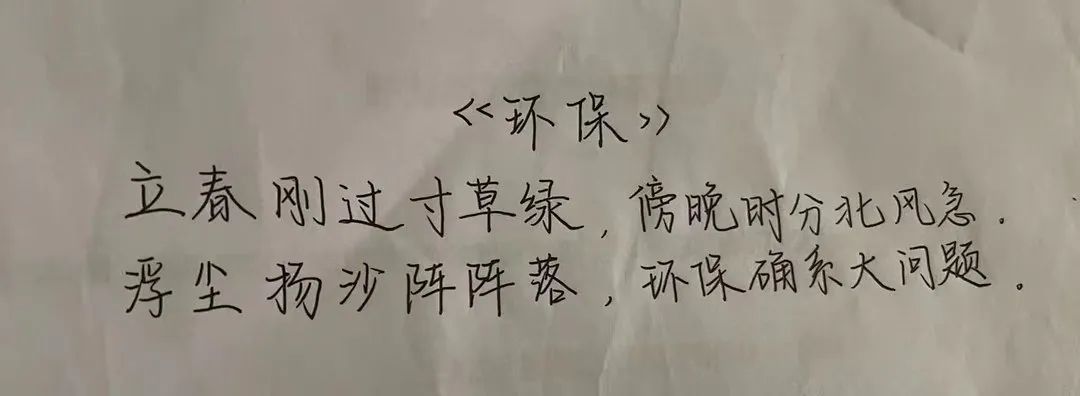 《环保》
立春刚过寸草绿,傍晚时分北风急.
浮尘扬沙阵阵落,环保确系大问题.